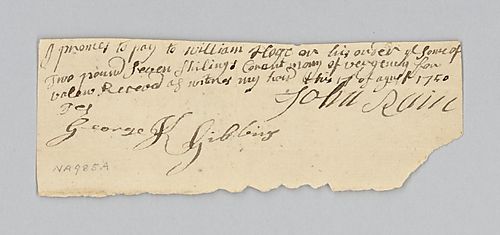 I promes to pay to William Hoge or his order ye some of
Two pound Seven Shilings Corant mony of vergeny for
valow Receved as witnes my hand this 17 of agust 1750
Tes
John Rain
George K Gibbins
NA985A